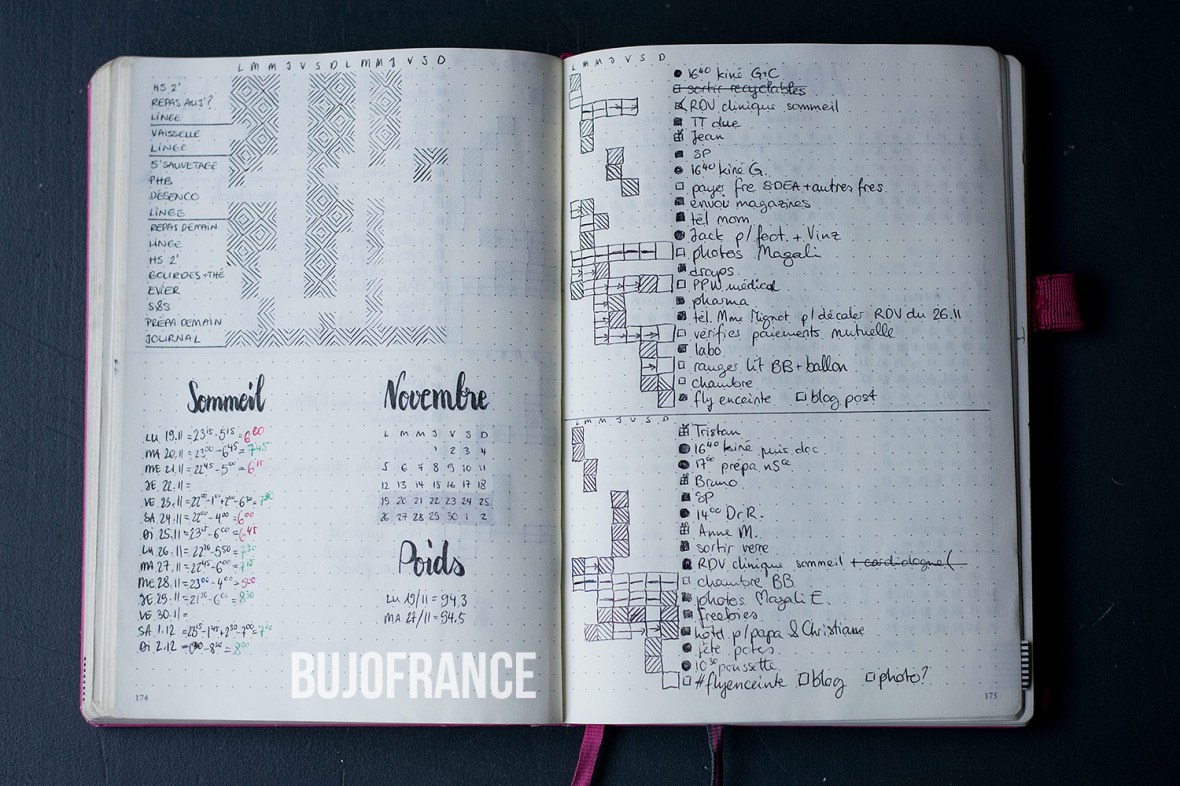 L M M J V S D L M M J V S D
HS 2'
REPAS AUJ'?
LINGE
VAISSELLE
LINGE
5' SAUVETAGE
PHB
DÉSENCO
LINGE
REPAS DEMAIN
LINGE
HS 2'
GOURDES+THÉ
EVIER
S&S
PRÉPA DEMAIN
JOURNAL
Sommeil
LU 19.11 = 23 15 - 5 15 = 6 00
MA 20.11 = 23 00 - 6 45 = 7 45
ME 21.11 = 22 45 - 5 00 = 6 15
JE 22.11 =
VE 23.11 = 22 00 - 1 00 + 2 00 - 6 30 = 7 30
SA 24.11 = 22 00 - 4 00 = 6 00
DI 25.11 = 23 15 - 6 00 = 6 45
LU 26.11 = 22 30 - 5 50 = 7 20
MA 27.11 = 22 45 - 6 00 = 7 15
ME 28.11 = 23 00 - 4 00 = 5 00
JE 29.11 = 21 30 - 6 00 = 8 30
VE 30.11 =
SA 1.12 = 23 15 - 1 45 + 2 30 - 7 00 =
DI 2.12 = - 8 30 = 8 00
Novembre
L M M J V S D
1 2 3 4
5 6 7 8 9 10 11
12 13 14 15 16 17 18
19 20 21 22 23 24 25
26 27 28 29 30 1 2
Poids
LU 19/11 = 94.3
MA 27/11 = 94.5
174
L M M J V S D
16 40 kiné G+C
sortir recyclables
RDV clinique sommeil
TT due
Jean
SP
16 40 kiné G.
payer fre SDEA + autres fres.
envoi magazines
tél mom
Jack p/ foot. + Vinz
photos Magali
draps
PPW médical
pharma
tél. Mme Mignot p/ décaler RDV du 26.11
vérifies paiements mutuelle
labo
ranger lit BB + ballon
chambre
fly enceinte blog post
L M M J V S D
Tristan
16 40 kiné puis doc
17 00 prépa nsce
Bruno
SP
14 00 Dr R.
Anne M.
sortir verre
RDV clinique sommeil + cardiologue (
chambre BB
photos Magali E.
freebies
hôtel p/ papa & Christiane
fête potes
10 30 poussette
#flyenceinte blog photo?
175
BUJOFRANCE